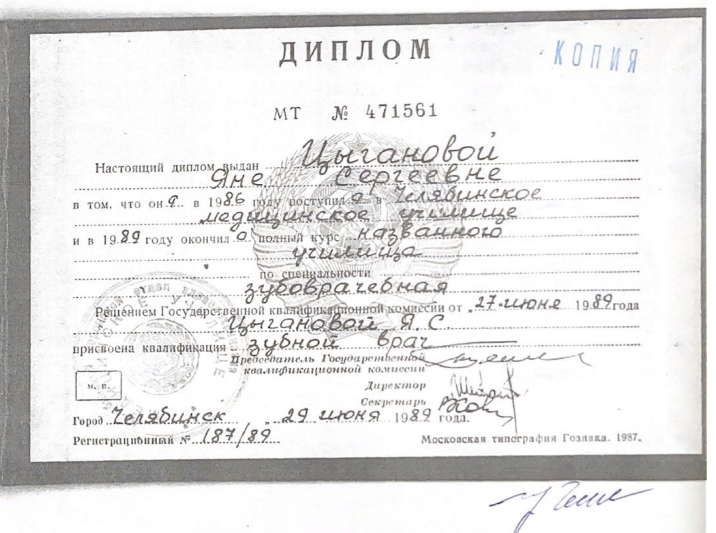 ДИПЛОМ
КОПИЯ
МТ № 471561
Настоящий диплом выдан Цыгановой
Яне Сергеевне
в том, что он а в 1986 году поступил а в Челябинское
медицинское училище
и в 1989 году окончил а полный курс названного
училища
по специальности
зубоврачебная
Решением Государственной квалификационной комиссии от 27 июня 1989 года
Цыгановой Я.С.
присвоена квалификация зубной врач
Председатель Государственной
квалификационной комиссии
М. П.
Директор
Секретарь
Город Челябинск 29 июня 1989 года.
Регистрационный № 187/89
Московская типография Гознака. 1987.